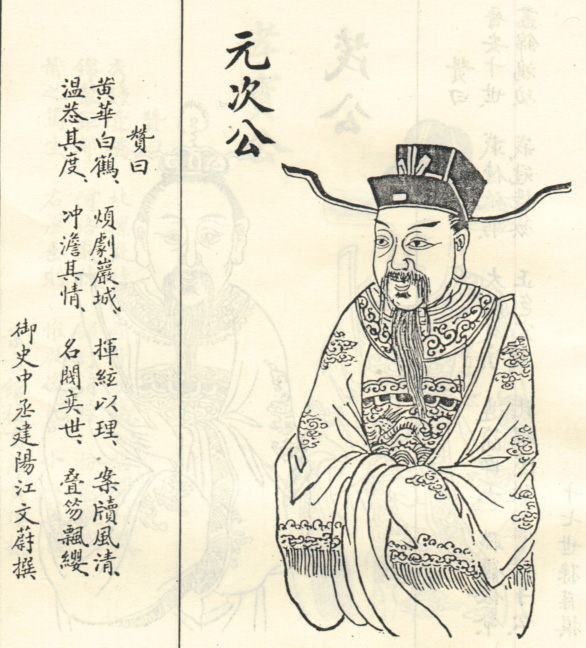 元次公
贊曰
黄華白鶴、煩劇巖城、揮絃以理、案牘風清、
温恭其度、冲澹其情、名閥奕世、疊笏飄纓、
御史中丞建陽江文蔚撰